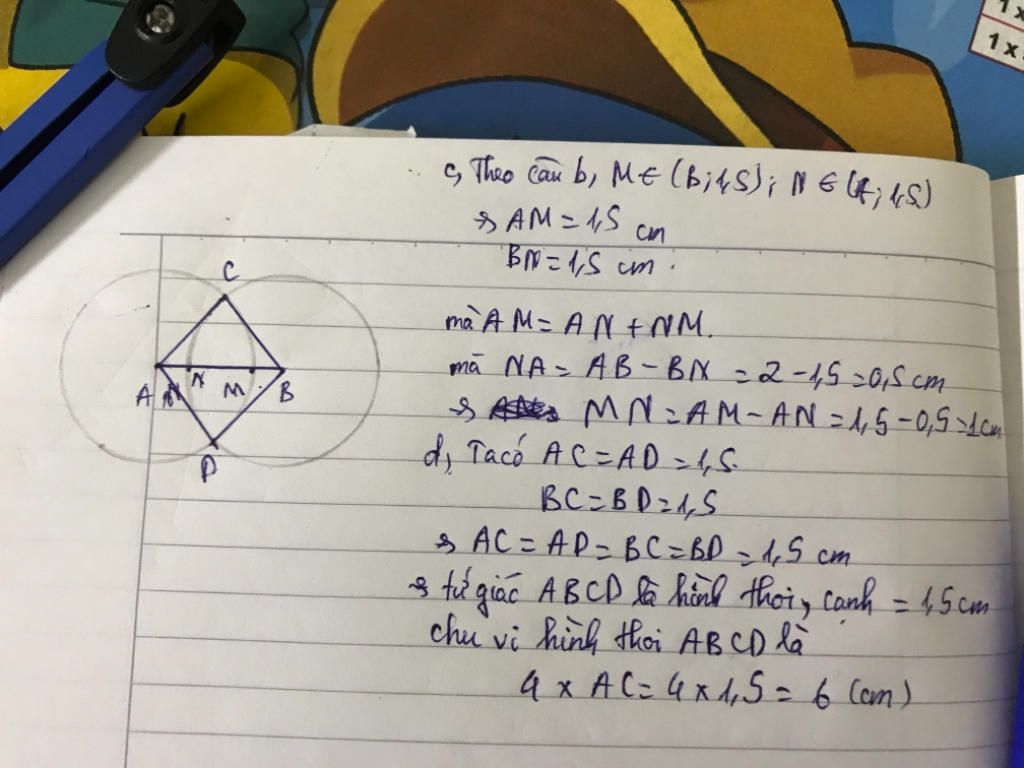 1 x
1 x
c, Theo câu b, M ∈ (B; 1,5); N ∈ (A; 1,5)
=> AM = 1,5 cm
BN = 1,5 cm.
mà AM = AN + NM.
mà NA = AB - BN = 2 - 1,5 = 0,5 cm
=> MN = AM - AN = 1,5 - 0,5 = 1 cm
d, Ta có AC = AD = 1,5.
BC = BD = 1,5
=> AC = AD = BC = BD = 1,5 cm
=> tứ giác ABCD là hình thoi, cạnh = 1,5 cm
chu vi hình thoi ABCD là
4 x AC = 4 x 1,5 = 6 (cm)
C
A N M B
D